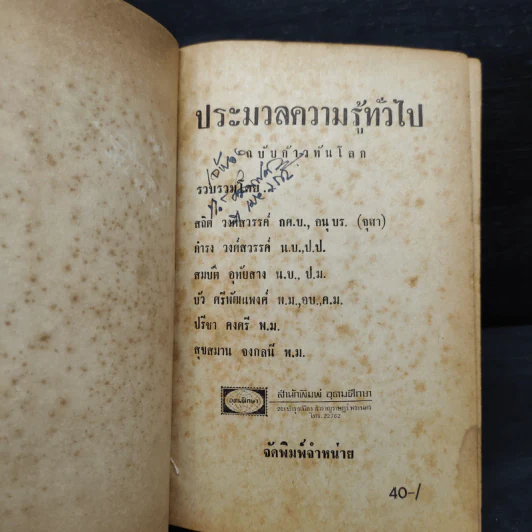 ประมวลความรู้ทั่วไป
ฉบับก้าวทันโลก
รวบรวมโดย..
สถิต วงศ์สวรรค์ กศ.บ., อนุ บร. (จุฬา)
ดำรง วงศ์สวรรค์ น.บ.,ป.ป.
สมบัติ อุทัยสาง น.บ., ป.ม.
บัว ศรีพัฒนพงศ์ พ.ม.,อบ.,ค.ม.
ปรีชา คงศรี พ.ม.
สุขสมาน จงกลนี พ.ม.
สำนักพิมพ์ อุดมศึกษา
จัดพิมพ์จำหน่าย
40-/